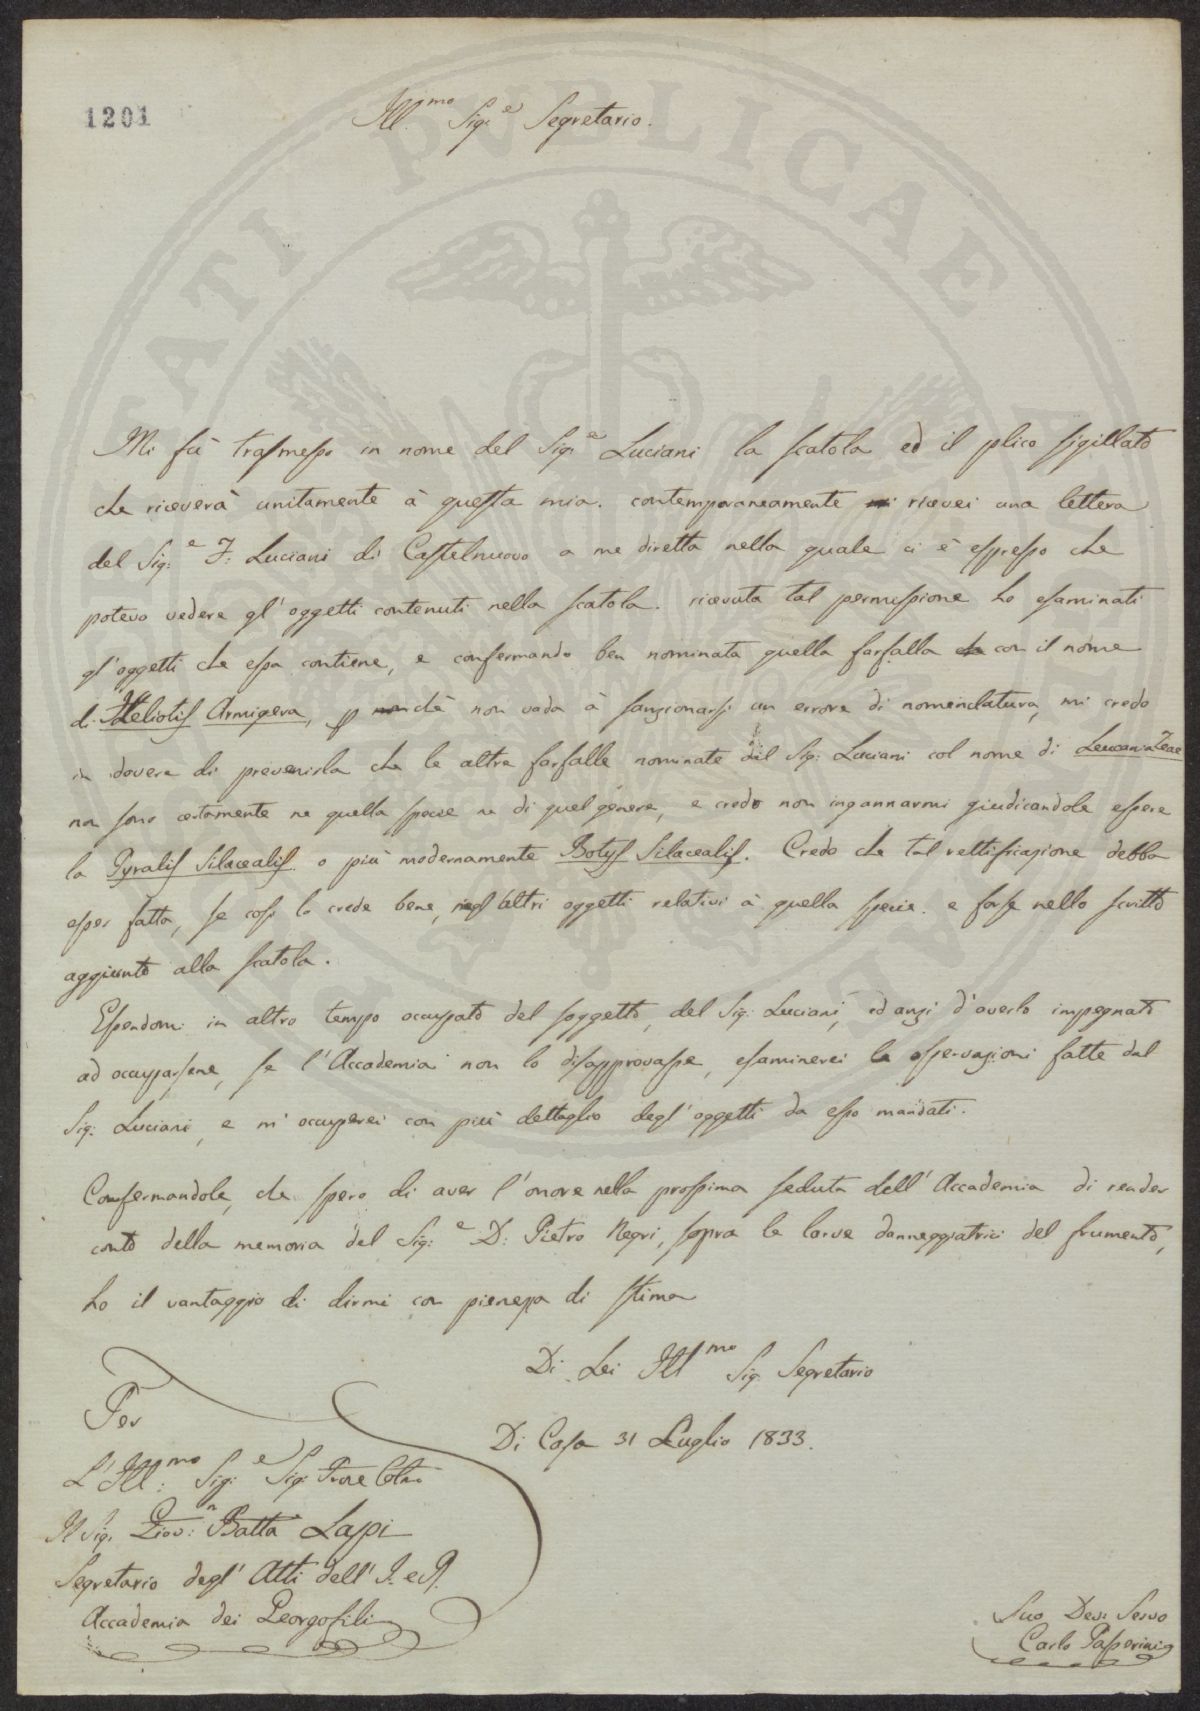 1201
Ill.mo Sig.e Segretario.
Mi fù trasmesso in nome del Sig.e Luciani la scatola ed il plico sigillato
che riceverà unitamente à questa mia. contemporaneamente ricevei una lettera
del Sig.e F. Luciani di Castelnuovo a me diretta nella quale ci è espresso che
potevo vedere gl'oggetti contenuti nella scatola. ricevuta tal permissione ho esaminati
gl'oggetti che essa contiene, e confermando ben nominata quella farfalla con il nome
di Heliotis Armigera, chè non vada à sanzionarsi un errore di nomenclatura, mi credo
in dovere di prevenirla che le altre farfalle nominate dal Sig. Luciani col nome di Leucania Zeae
non sono certamente ne quella specie ne di quel genere, e credo non ingannarmi giudicandole essere
la Pyralis Silacealis o più modernamente Botys Silacealis. Credo che tal rettificazione debba
esser fatta, se così lo crede bene, altri oggetti relativi à quella specie. e forse nello scritto
aggiunto alla scatola.
Essendomi in altro tempo occupato del soggetto, del Sig. Luciani, ed anzi d'averlo impegnato
ad occuparsene, se l'Accademia non lo disapprovasse, esaminerei le osservazioni fatte dal
Sig. Luciani, e m'occuperei con più dettaglio degl'oggetti da esso mandati.
Confermandole, che spero di aver l'onore nella prossima seduta dell'Accademia di render
conto della memoria del Sig.e D: Pietro Negri, sopra le larve danneggiatrici del frumento,
ho il vantaggio di dirmi con pienezza di stima
Di Lei Ill.mo Sig. Segretario
Di Casa 31 Luglio 1833.
Per
L'Ill:mo Sig:e Sig: Prone Colmo
Il Sig. Giov:n Batta Lapi
Segretario degl'Atti dell'I. e R.
Accademia dei Georgofili
Suo Dev: Servo
Carlo Passerini
PVBLICAE